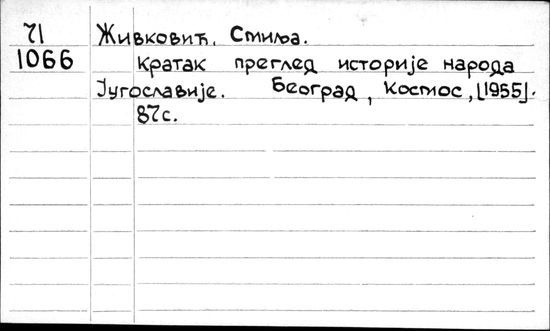 71 Живковић, Смиља.
1066 Кратак преглед историје народа
Југославије. Београд, Космос, [1955].
87с.